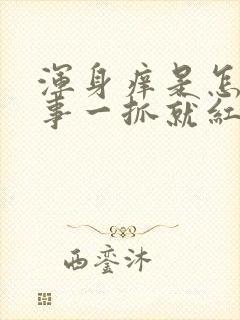 渾身痒是怎
事一抓就紅
西鸾沐